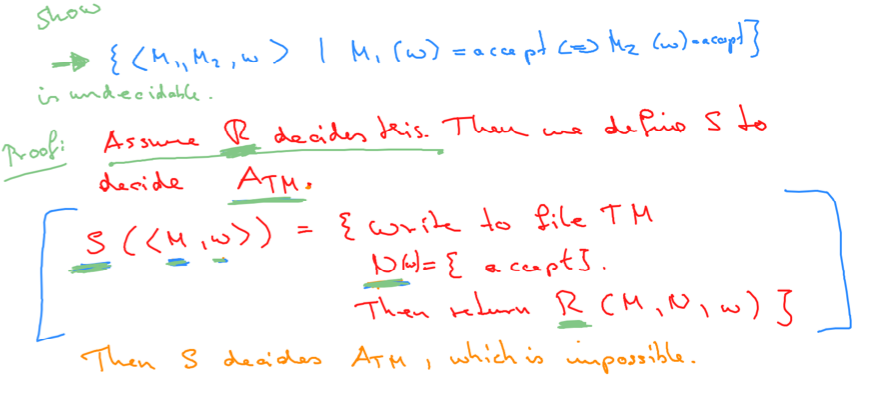 Show
→ { <M₁, M₂, w> | M₁(w) = accept <=> M₂(w) = accept }
is undecidable.
Proof: Assume R decides this. Then we define S to
decide A_TM.
S(<M, w>) = { write to file TM
N(w) = { accept }.
Then return R(M, N, w) }
Then S decides A_TM, which is impossible.